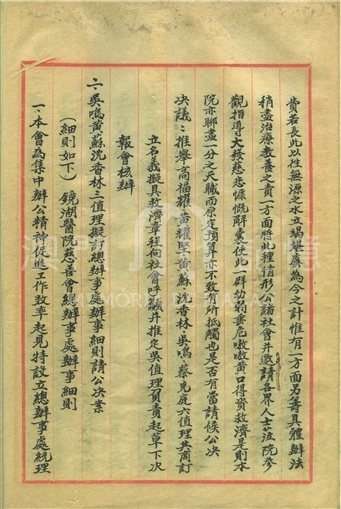 費若長此以往無源之水立竭堪虞為今之計惟有一方面另籌具體辦法
稍盡治療教養之責一方面將此種情形公諸社會并邀請各界人士蒞院參
觀指導大發慈悲慷慨解囊使此一群幼弱垂危嗷嗷黃口得資救濟是則本
院亦聊盡一分之天職而原定預算亦不致有所抵觸也是否有當請候公決
決議：推舉高福耀黃耀堅黃蘇沈香林吳鳴蔡克庭六值理共商訂
立名義擬具救濟章程向社會呼籲并推定吳值理負責起草下次
報會核辦
二、吳鳴黃蘇沈香林三值理擬訂總辦事處辦事細則請公決案
（細則如下）鏡湖醫院慈善會總辦事處辦事細則
一、本會為集中辦公精神促進工作效率起見特設立總辦事處統理